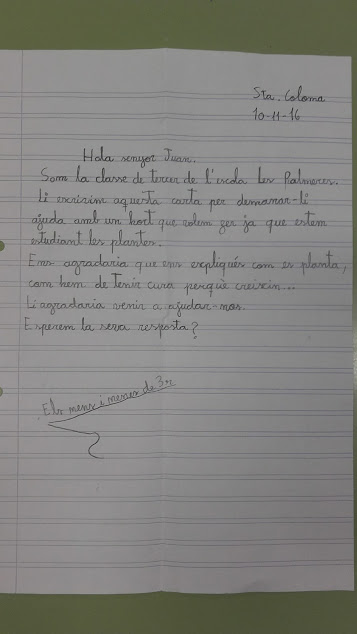 Sta. Coloma
10-11-16
Hola senyor Juan.
Som la classe de tercer de l'escola Les Palmeres.
Li escrivim aquesta carta per demanar-li
ajuda amb un hort que volem fer ja que estem
estudiant les plantes.
Ens agradaria que ens expliqués com es planta,
com hem de tenir cura perquè creixin...
Li agradaria venir a ajudar-nos.
Esperem la seva resposta?
Els nens i nenes de 3r